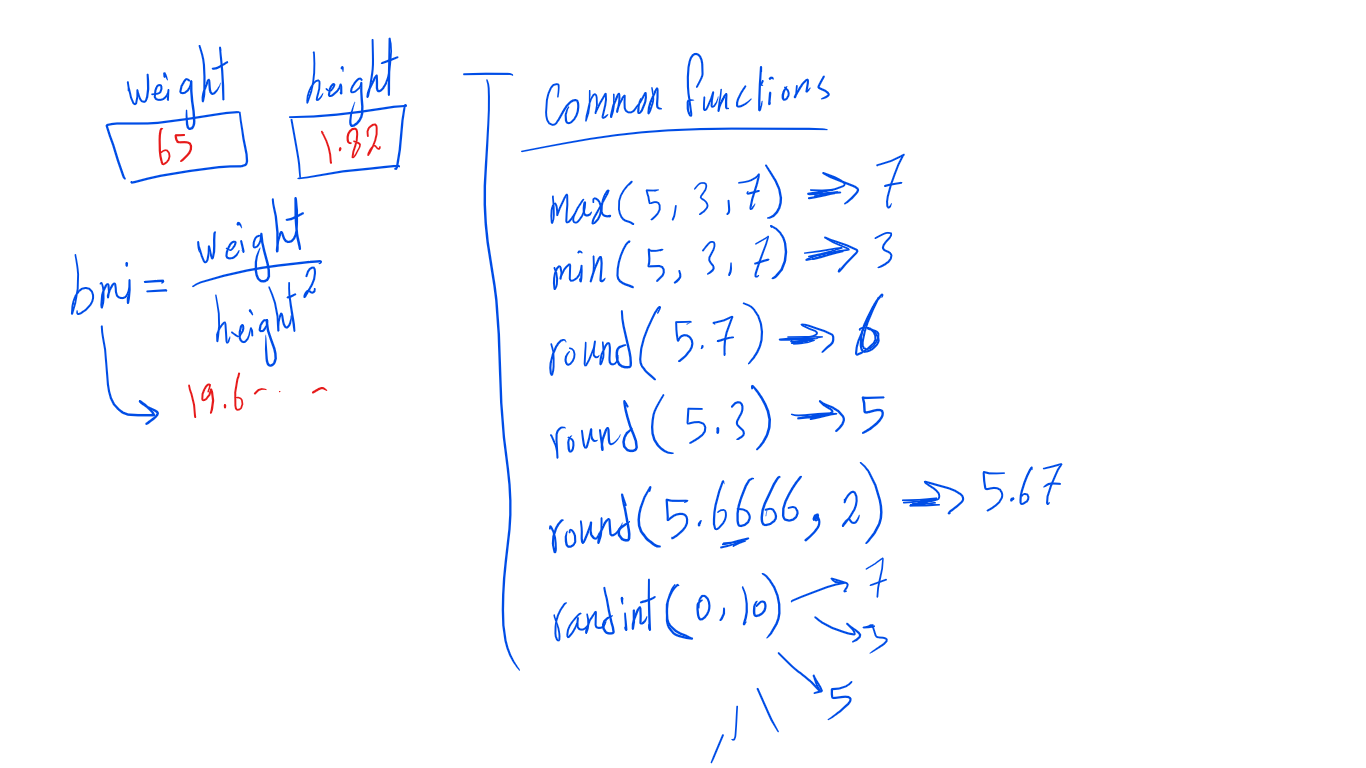 weight height
65 1.82
bmi = weight / height²
19.6
Common functions
max(5, 3, 7) => 7
min(5, 3, 7) => 3
round(5.7) => 6
round(5.3) => 5
round(5.6666, 2) => 5.67
randint(0, 10) → 7
→ 3
→ 5